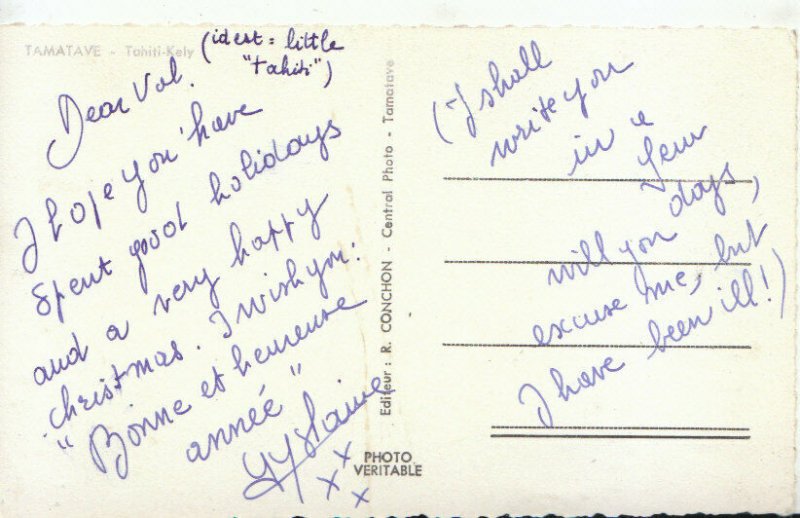 TAMATAVE - Tahiti-Kely
(id est: little
"tahiti")
Dear Val.
I hope you have
spent good holidays
and a very happy
christmas. I wish you:
"Bonne et heureuse
année"
Gyslaine
x
x x
Editeur : R. CONCHON - Central Photo - Tamatave
PHOTO
VERITABLE
(I shall
write you
in a
few
days,
will you
excuse me, but
I have been ill!)